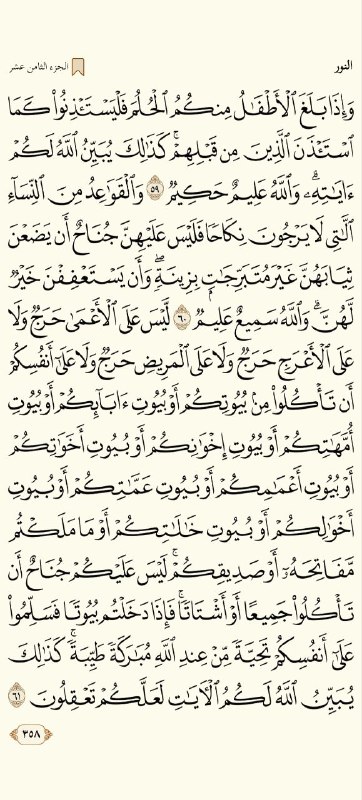 النور الجزء الثامن عشر
وَإِذَا بَلَغَ ٱلْأَطْفَـٰلُ مِنكُمُ ٱلْحُلُمَ فَلْيَسْتَـْٔذِنُوا۟ كَمَا
ٱسْتَـْٔذَنَ ٱلَّذِينَ مِن قَبْلِهِمْ ۚ كَذَٰلِكَ يُبَيِّنُ ٱللَّهُ لَكُمْ
ءَايَـٰتِهِۦ ۗ وَٱللَّهُ عَلِيمٌ حَكِيمٌ ٥٩ وَٱلْقَوَٰعِدُ مِنَ ٱلنِّسَآءِ
ٱلَّـٰتِى لَا يَرْجُونَ نِكَاحًا فَلَيْسَ عَلَيْهِنَّ جُنَاحٌ أَن يَضَعْنَ
ثِيَابَهُنَّ غَيْرَ مُتَبَرِّجَـٰتٍۭ بِزِينَةٍ ۖ وَأَن يَسْتَعْفِفْنَ خَيْرٌ
لَّهُنَّ ۗ وَٱللَّهُ سَمِيعٌ عَلِيمٌ ٦٠ لَّيْسَ عَلَى ٱلْأَعْمَىٰ حَرَجٌ وَلَا
عَلَى ٱلْأَعْرَجِ حَرَجٌ وَلَا عَلَى ٱلْمَرِيضِ حَرَجٌ وَلَا عَلَىٰٓ أَنفُسِكُمْ
أَن تَأْكُلُوا۟ مِنۢ بُيُوتِكُمْ أَوْ بُيُوتِ ءَابَآئِكُمْ أَوْ بُيُوتِ
أُمَّهَـٰتِكُمْ أَوْ بُيُوتِ إِخْوَٰنِكُمْ أَوْ بُيُوتِ أَخَوَٰتِكُمْ
أَوْ بُيُوتِ أَعْمَـٰمِكُمْ أَوْ بُيُوتِ عَمَّـٰتِكُمْ أَوْ بُيُوتِ
أَخْوَٰلِكُمْ أَوْ بُيُوتِ خَـٰلَـٰتِكُمْ أَوْ مَا مَلَكْتُم
مَّفَاتِحَهُۥٓ أَوْ صَدِيقِكُمْ ۚ لَيْسَ عَلَيْكُمْ جُنَاحٌ أَن
تَأْكُلُوا۟ جَمِيعًا أَوْ أَشْتَاتًا ۚ فَإِذَا دَخَلْتُم بُيُوتًا فَسَلِّمُوا۟
عَلَىٰٓ أَنفُسِكُمْ تَحِيَّةً مِّنْ عِندِ ٱللَّهِ مُبَـٰرَكَةً طَيِّبَةً ۚ كَذَٰلِكَ
يُبَيِّنُ ٱللَّهُ لَكُمُ ٱلْـَٔايَـٰتِ لَعَلَّكُمْ تَعْقِلُونَ ٦١
٣٥٨